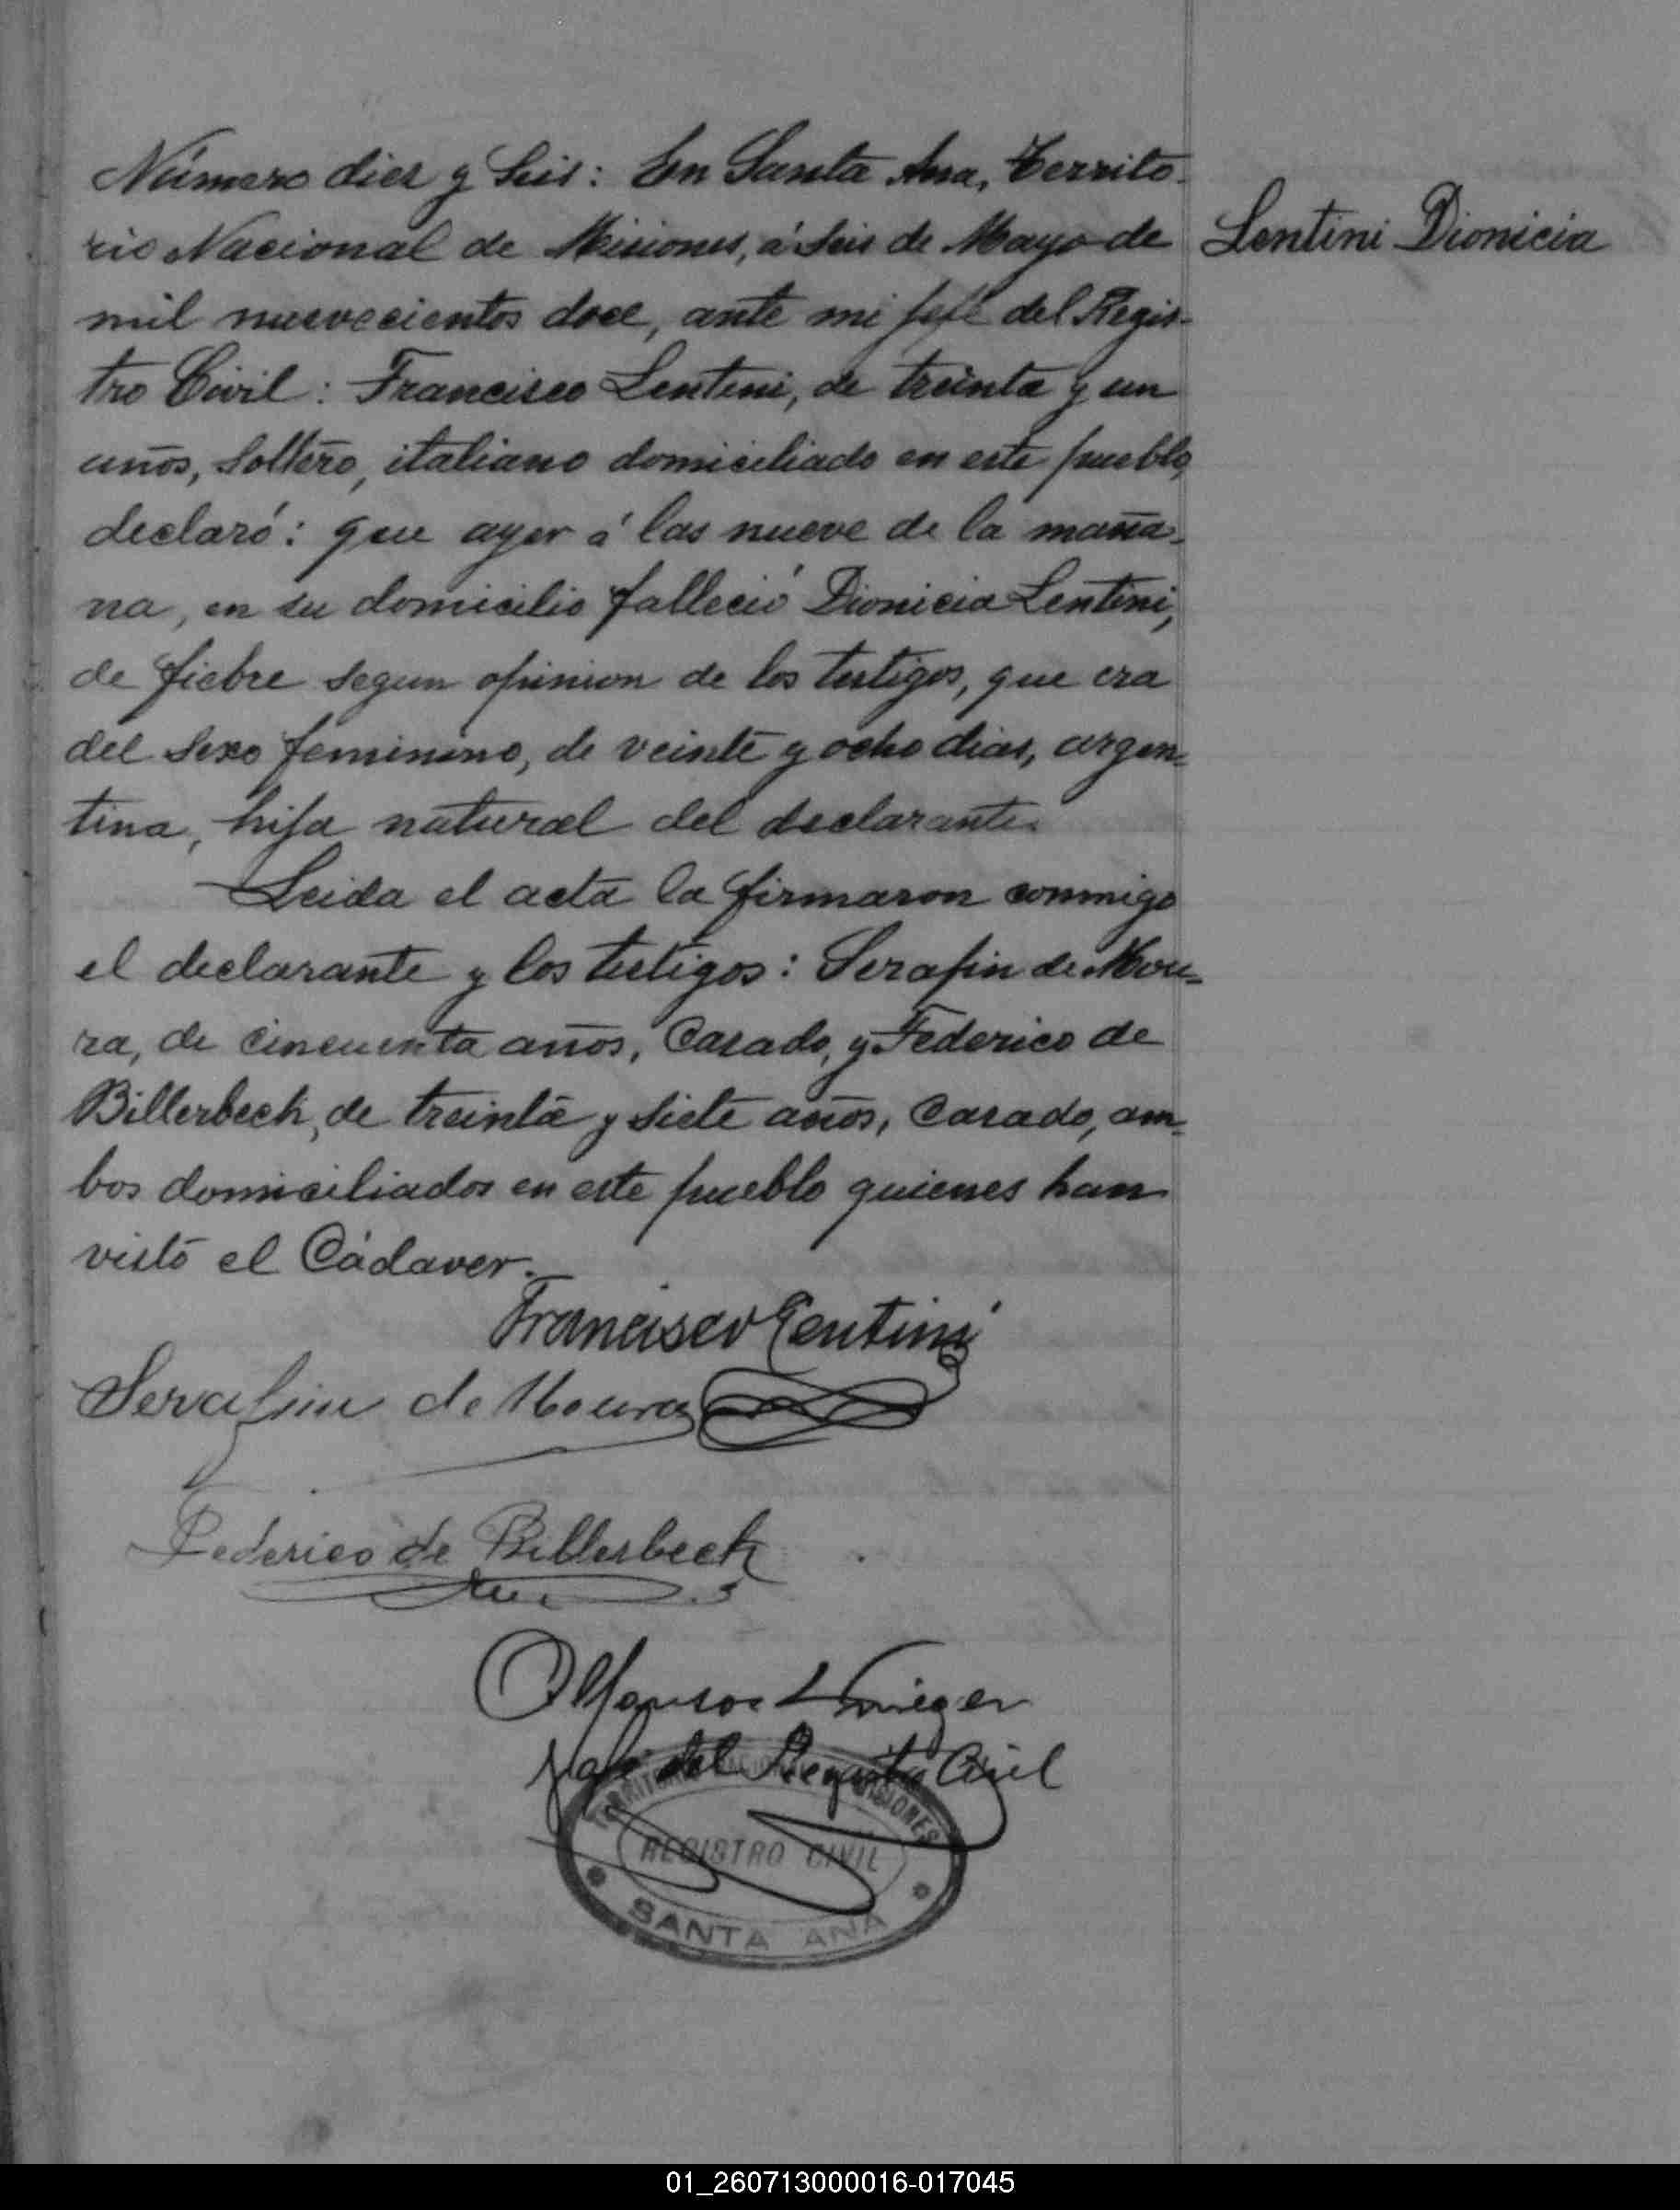 Número diez y Seis: En Santa Ana, Territo-
rio Nacional de Misiones, á Seis de Mayo de
Lentini Dionicia
mil nuevecientos doce, ante mi jefe del Regis-
tro Civil: Francisco Lentini, de treinta y un
años, Soltero, italiano domiciliado en este pueblo,
declaró: que ayer á las nueve de la maña-
na, en su domicilio falleció Dionicia Lentini,
de fiebre segun opinion de los testigos, que era
del Sexo femenino, de veinte y ocho dias, argen-
tina, hija natural del declarante.
Leida el acta la firmaron conmigo
el declarante y los testigos: Serafin de Mou-
ra, de cincuenta años, Casado, y Federico de
Billerbeck, de treinta y siete años, Casado, am-
bos domiciliados en este pueblo quienes han
visto el Cádaver.
Francisco Lentini
Serafim de Moura
Federico de Billerbeck
Alfonso Krieger
jefe del Registro Civil
TERRITORIO NACIONAL MISIONES
REGISTRO CIVIL
SANTA ANA
01_260713000016-017045